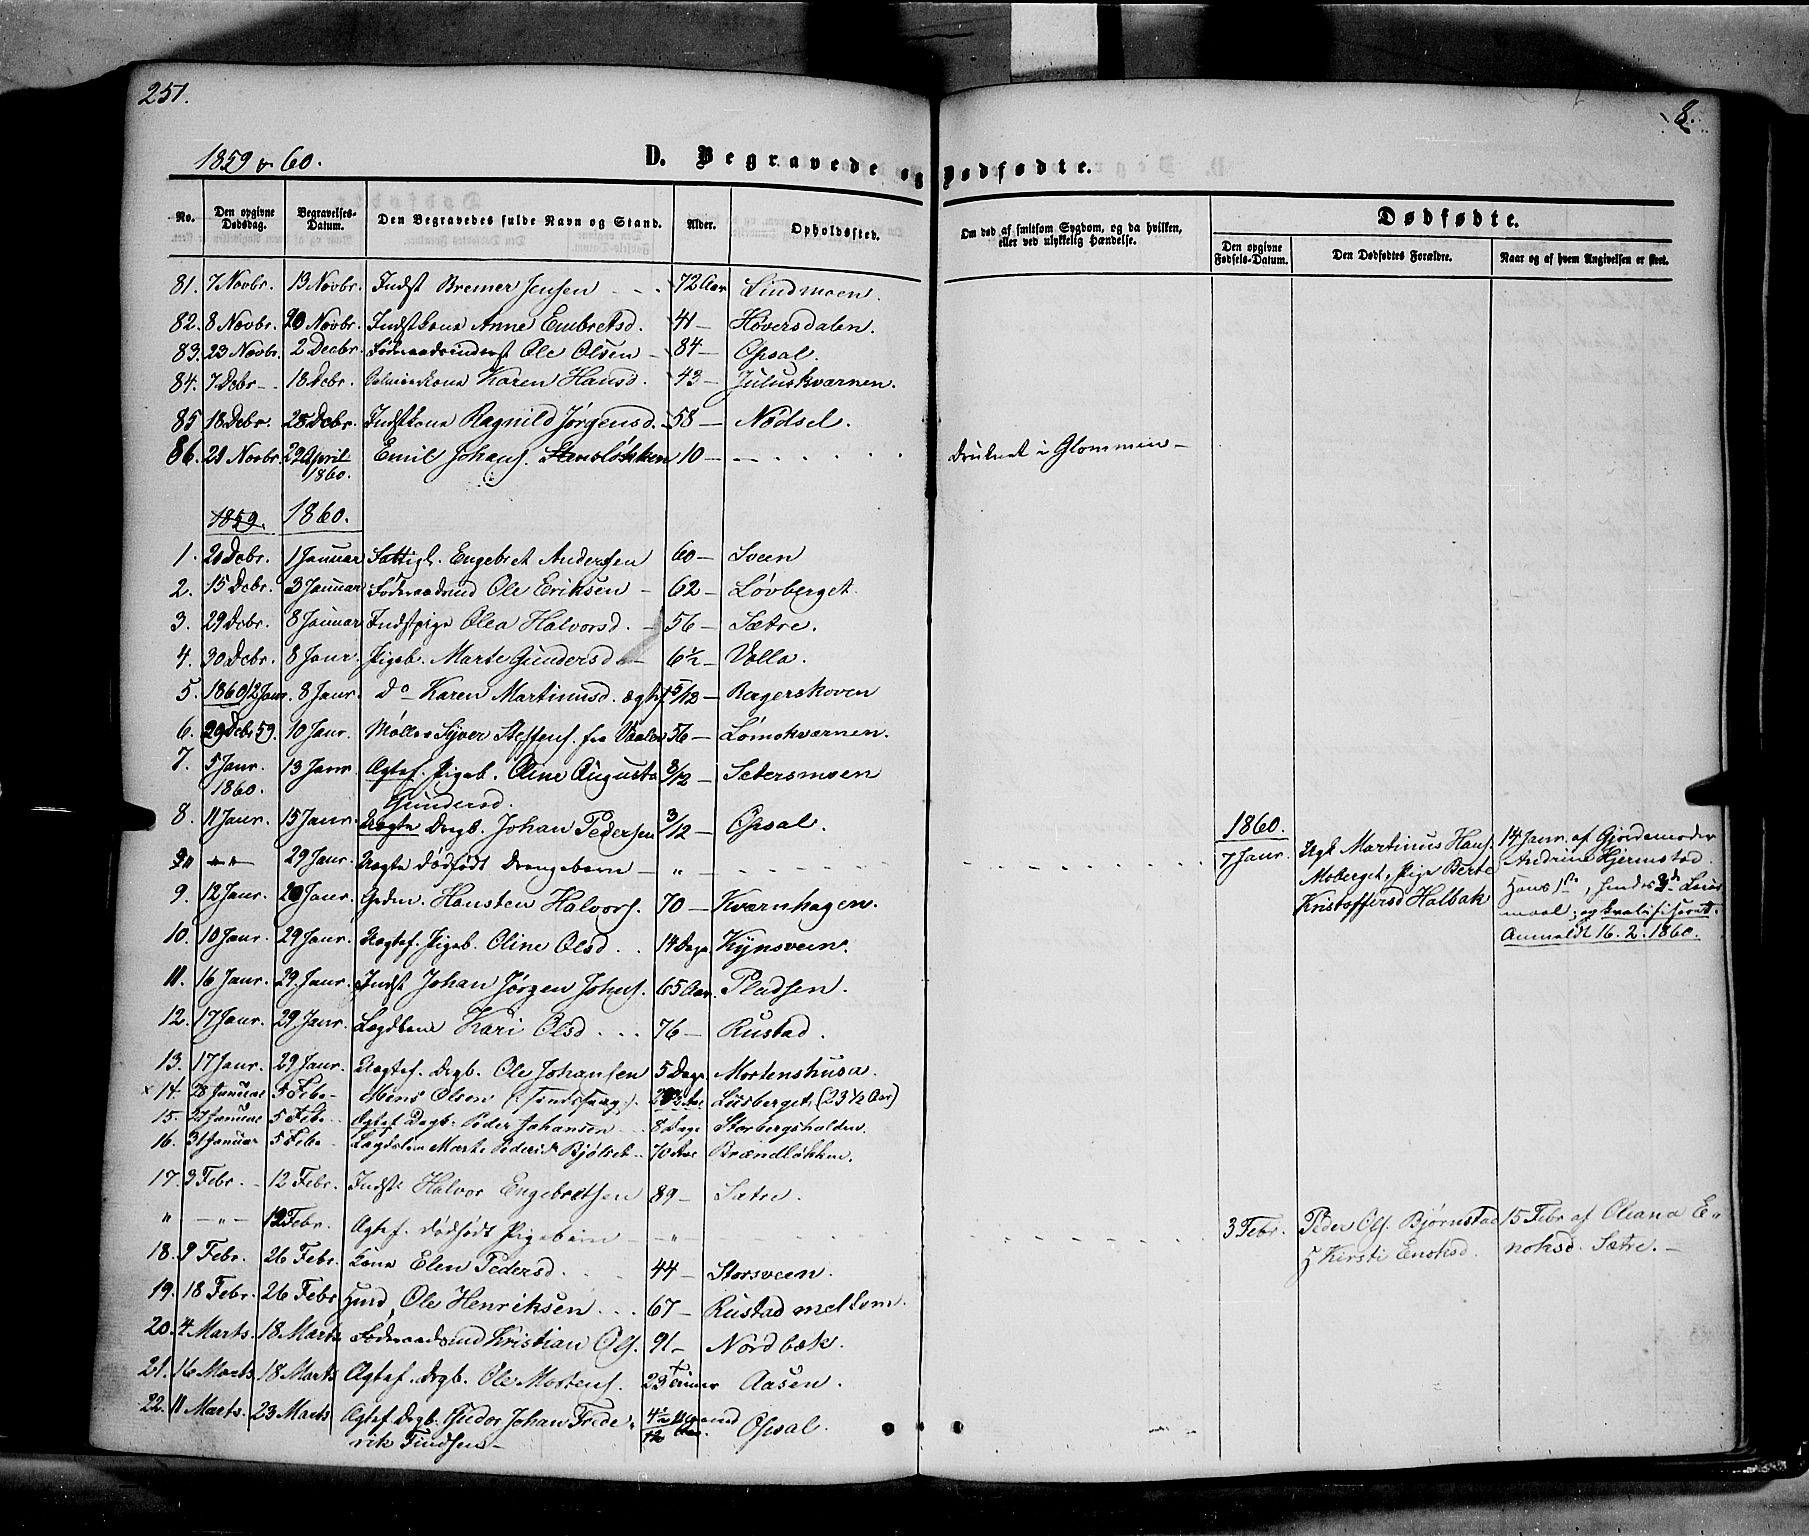 251.
8.
1859 & 60.
D. Begravede og Dødfødte.
No. Den opgivne Dødsdag. Begravelses-Datum. Den Begravedes fulde Navn og Stand. Alder. Opholdssted. Om død af smitsom Sygdom, og da hvilken, eller ved ulykkelig Hændelse. Dødfødte.
Den opgivne Fødsels-Datum. Den Dødfødtes Forældre. Naar og af hvem Angivelsen er skeet.
81. 7 Novbr. 13 Novbr. Indst Bremer Jensen - - - 72 Aar Lindmoen.
82. 8 Novbr. 20 Novbr. Indstkone Anne Embretsd. 41 - Høversdalen.
83. 23 Novbr. 2 Decbr. Føderaadsinderst Ole Olsen - 84 - Opsal.
84. 7 Dcbr - 18 Dcbr. Karen Hansd. 43 - Juluskværnen.
85 18 Dcbr. 28 Dcbr. Indstkone Ragnild Jørgensd. 58 - Nødsel.
86. 21 Novbr. 29 April 1860. Emil Johans. Stensløkken 10 - - - - - - druknet i Glommen -
1859. 1860.
1. 20 Dcbr. 1 Januar Fattigl. Engebret Andersen 60 - Sveen
2. 15 Dcbr. 3 Januar Føderaadmd Ole Eriksen - 62 - Løvberget.
3. 29 Dcbr. 8 Januar Indstpige Olea Halvorsd. - 56 - Sætre.
4. 30 Dcbr. 8 Janr. Pigeb. Marte Gundersd - 6½ - Volla.
5. 1860 2 Janr. 8 Janr. Do Karen Martinusd. ægtef 5/12 - Bagerskoven
6. 29 Dcbr 59. 10 Janr. Møller Syver Steffens. fra Vaaler 56 - Lømokværnen.
7. 5 Janr. 1860. 13 Janr Ægtef. Pigeb. Oline Augusta Gundersd. 8/12 - Setersmoen
8. 11 Janr. 15 Janr. Uægte Drgb. Johan Pedersen 3/12 - Opsal.
" - " - 29 Janr. Uægte dødfødt Drengebarn - " - - - - - 1860. 7 Janr. Ugk Martinus Hans. Moberget, Pige Berte Kristoffersd Halbak 14 Janr. af Gjordemoder Andrine Hjermstad. Hans 1ste, hendes 3de Leiermaal; og kvalificeret. Anmeldt 16. 2. 1860.
9. 12 Janr. 20 Janr. Gdm. Hansten Halvors. 70 - Kværnhagen.
10. 10 Janr. 29 Janr. Uægtef. Pigeb. Oline Olsd. . . 14 Dage Kynsveen.
11. 16 Janr. 29 Janr. Indst Johan Jørgen Johns. 65 Aar. Pladsen.
12. 17 Janr. 29 Janr. Lægdlem Kari Olsd . . . 76 - Rustad.
13. 17 Janr. 29 Janr. Uægtef. Drgb. Ole Johansen 5 Dage Mortenshusa.
x 14. 28 Januar 5 Febr - Mons Olsen Lusberget (23½ Aar)
15. 27 Januar 5 Febr. Ægtef Drgb. Peder Johansen . . 8 Dage Storbergshalden.
16. 31 Januar 5 Febr. Lægdslem Marte Pedersd. Bjølset - 70 Aar Brændløkken.
17. 3 Febr. - 12 Febr. Indst Halvor Engebretsen 89 - Sætre.
" - " - 12 Febr. Ægtef. dødfødt Pigebarn - - " - - - - - 3 Febr. Peder Ols. Bjørnstad & Kirsti Enoksd. 15 Febr af Oleana Enoksd. Sætre. -
18. 9 Febr. 26 Febr. Kone Elen Pedersd. . . . 44 - Storsveen.
19. 18 Febr. 26 Febr Husmd, Ole Henriksen . . . 67 - Rustad mellem.
20. 4 Marts. 18 Marts Føderaadsmd Kristian Ols. 91 - Nordbæk.
21. 16 Marts 18 Marts Ægtef. Drgb. Ole Mortens. 23 Timer Aasen.
22. 11 Marts. 23 Marts Ægtef. Drgb. Gudor Johan Frederik Findsen - 4½/12 Aar. Opsal.